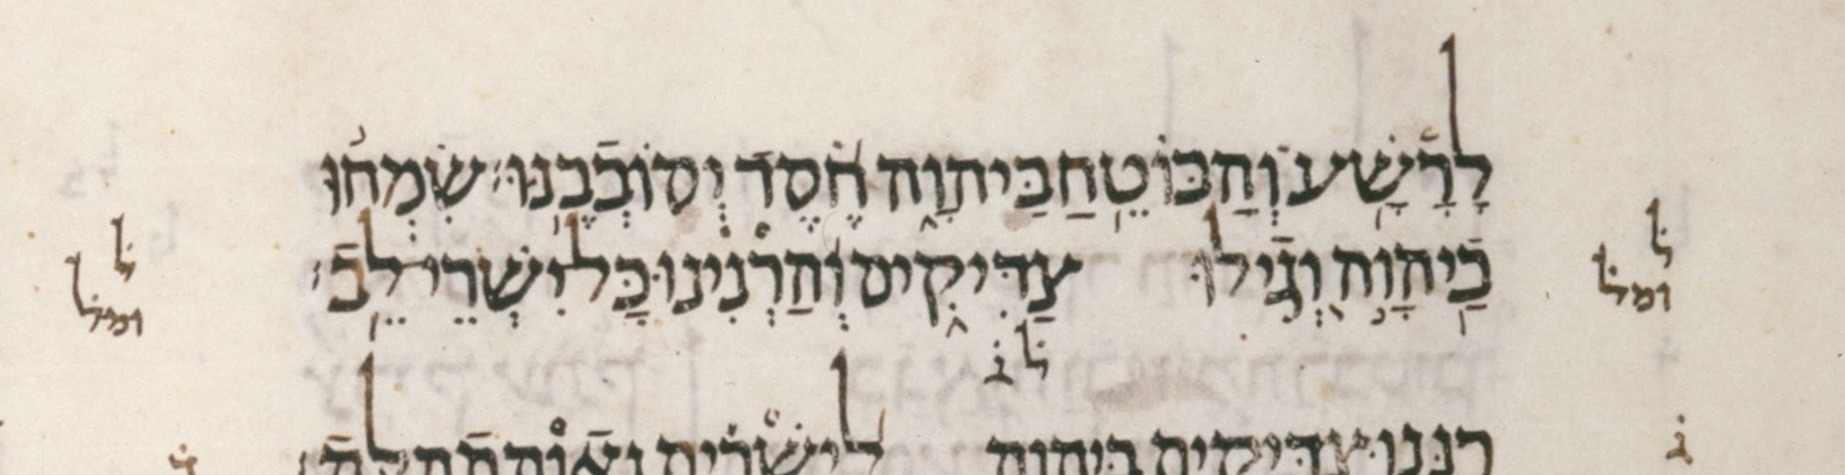 לָרָשָׁע וְהַבּוֹטֵחַ בַּיהוָה חֶסֶד יְסוֹבְבֶנּוּ׃ שִׂמְחוּ
ל
ל
בַיהוָה וְגִילוּ צַדִּיקִים וְהַרְנִינוּ כָּל יִשְׁרֵי לֵב׃
ומל
ומל
ל ב
ג
רַנְּנוּ צַדִּיקִים בַּיהוָה לַיְשָׁרִים נָאוָה תְהִלָּה׃